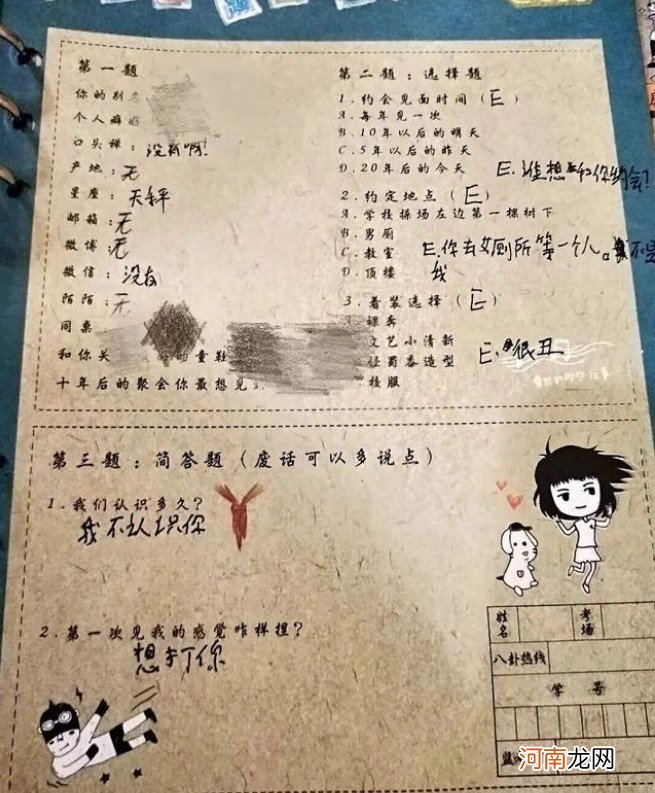 第一题
你的别
个人癖好
口头禅：没有啊！
产地：无
星座：天秤
邮箱：无
微博：无
微信：没有
陌陌：无
同桌
和你关 的童鞋
十年后的聚会你最想见
第二题：选择题
1.约会见面时间（E）
A.每年见一次
B.10年以后的明天
C.5年以后的昨天
D.20年后的今天
E.谁想和你约会？
2.约定地点（E）
A.学校操场左边第一棵树下
B.男厕
C.教室
D.顶楼
E.你去女厕所等一个人。不是
我
3.着装选择（E）
裸奔
文艺小清新
怪蜀黍造型
校服
E.很丑
第三题：简答题（废话可以多说点）
1.我们认识多久？
我不认识你
2.第一次见我的感觉咋样捏？
想打你
姓名
考场
八卦热线
学号
河南龙网